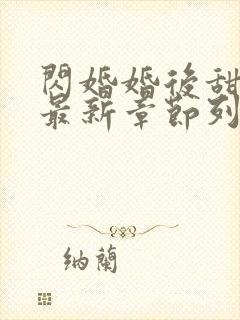 閃婚婚後甜
最新章節列
納蘭